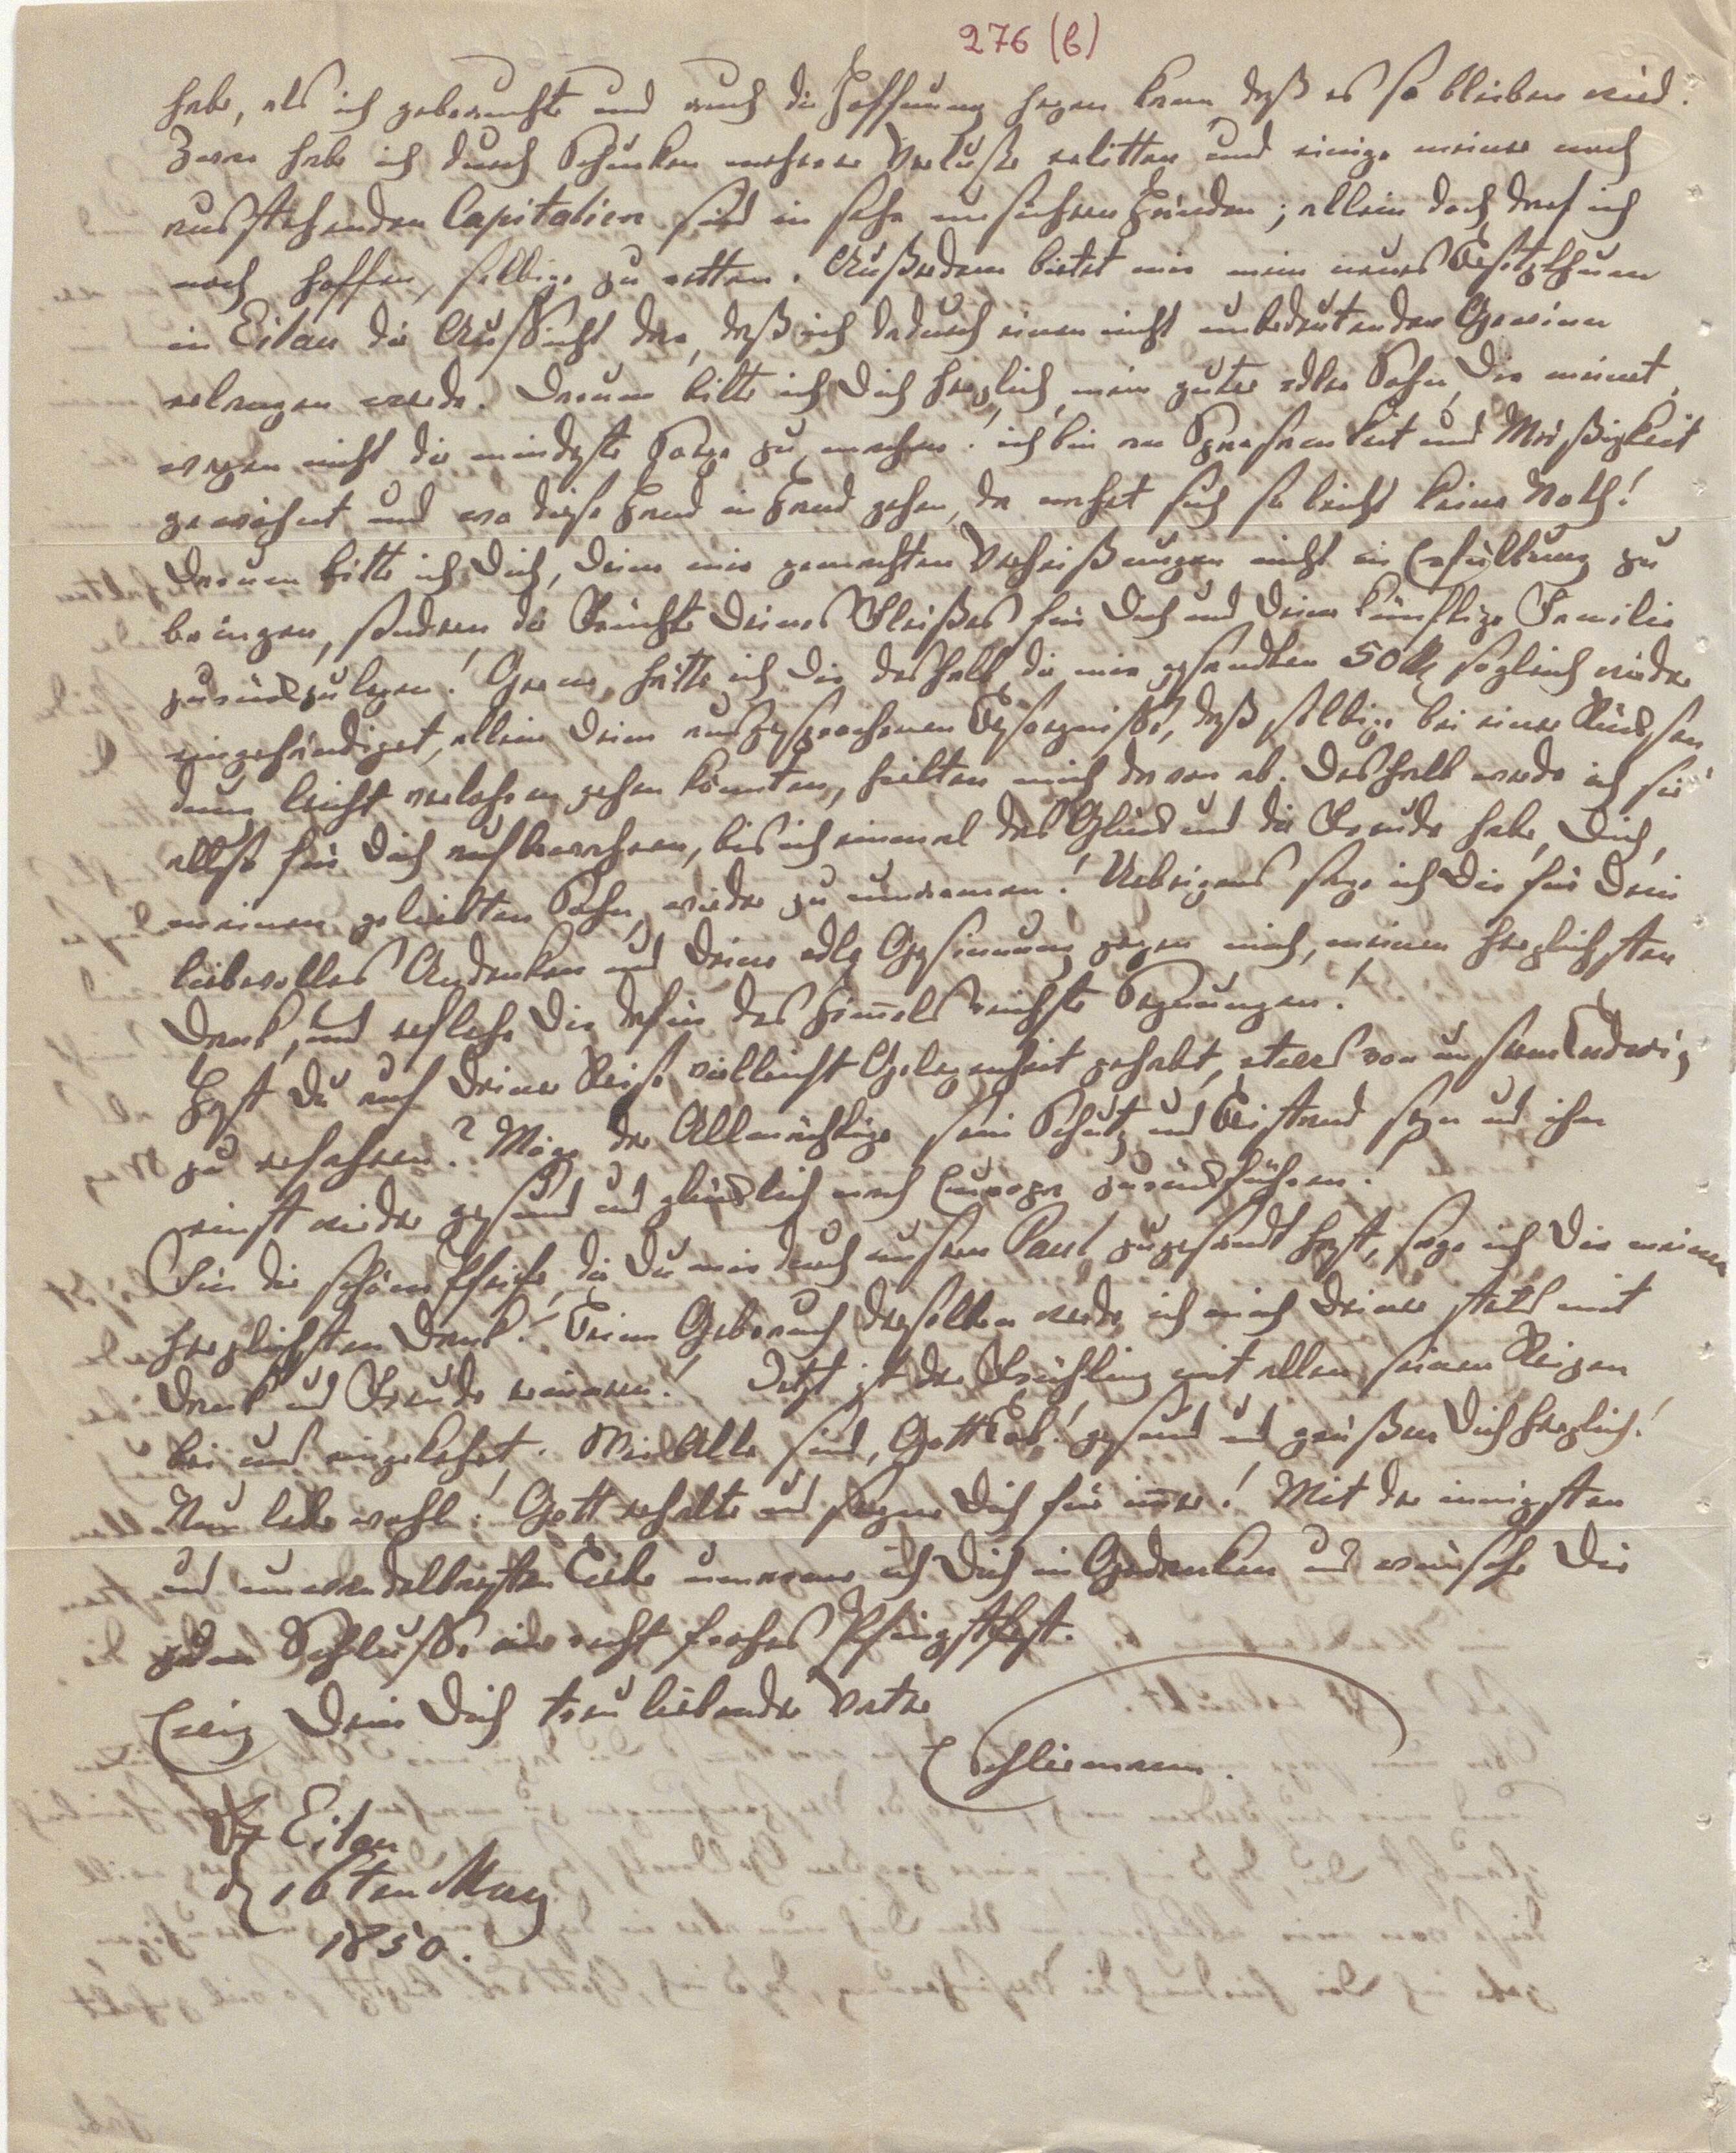 276 (b)
habe, als ich gebrauchte und auch die Hoffnung hegen kann, daß es so bleiben wird.
Zwar habe ich durch Schurken mehrere Verluste erlitten und einige meiner noch
ausstehenden Capitalien sind in sehr unsichern Händen; allein doch darf ich
noch hoffen, selbige zu retten. Außerdem bietet mir mein neues Besitzthum
in Eilau die Aussicht dar, daß ich dadurch einen nicht unbedeutenden Gewinn
erlangen werde. Darum bitte ich Dich herzlich, mein guter edler Sohn, Dir meinet,
wegen nicht die mindeste Sorge zu machen! ich bin an Sparsamkeit und Mäßigkeit
gewöhnt und wo diese Hand in Hand gehen, da nahet sich so leicht keine Noth!
Darum bitte ich Dich, Deine mir gemachten Verheißungen nicht in Erfüllung zu
bringen, sondern die Früchte Deines Fleißes für Dich und Deine künftige Familie
zurückzulegen! Gerne hätte ich Dir deshalb die mir gesandten 50 sogleich wieder
eingehändiget, allein Deine ausgesprochenen Besorgnisse, daß selbige bei einer Rücksen
dung leicht verlohren gehen könnten, hielten mich davon ab. Deshalb werde ich sie
also für Dich aufbewahren, bis ich einmal das Glück und die Freude habe, Dich,
meinen geliebten Sohn, wieder zu umarmen! Uebrigens sage ich Dir für Dein
liebevolles Andenken und Deine edle Gesinnung gegen mich, meinen herzlichsten
Dank, und erflehe Dir dafür des Himmels reichste Segnungen!
Hast Du auf Deiner Reise vielleicht Gelegenheit gehabt, etwas von unserm Ludwig
zu erfahren? Möge der Allmächtige sein Schutz und Beistand seyn und ihn
einst wieder gesund und glücklich nach Europa zurückführen!
Für die schöne Pfeife, die Du mir durch unsern Paul zugesandt hast, sage ich Dir meinen
herzlichsten Dank! Beim Gebrauch derselben werde ich mich Deiner stets mit
Dank und Freude erinnern! Jetzt ist der Frühling mit allen seinen Reizen
bei uns eingekehrt. Wir Alle sind, Gott Lob! gesund und grüßen Dich herzlich!
Nun lebe wohl! Gott erhalte und segne Dich für immer! Mit der innigsten
und unwandelbarsten Liebe umarme ich Dich in Gedanken und wünsche Dir
zum Schlusse ein recht frohes Pfingstfest.
Ewig Dein Dich treu liebender Vater
ESchliemann.
Eilau
d 16ten May
1850.